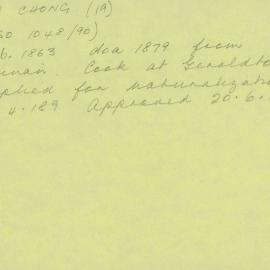 CHONG (19)
1048/90)
b. 1863 doa 1879 from
Cook at Geraldto
plied for naturalizatio
4.189 Approved 20.6.